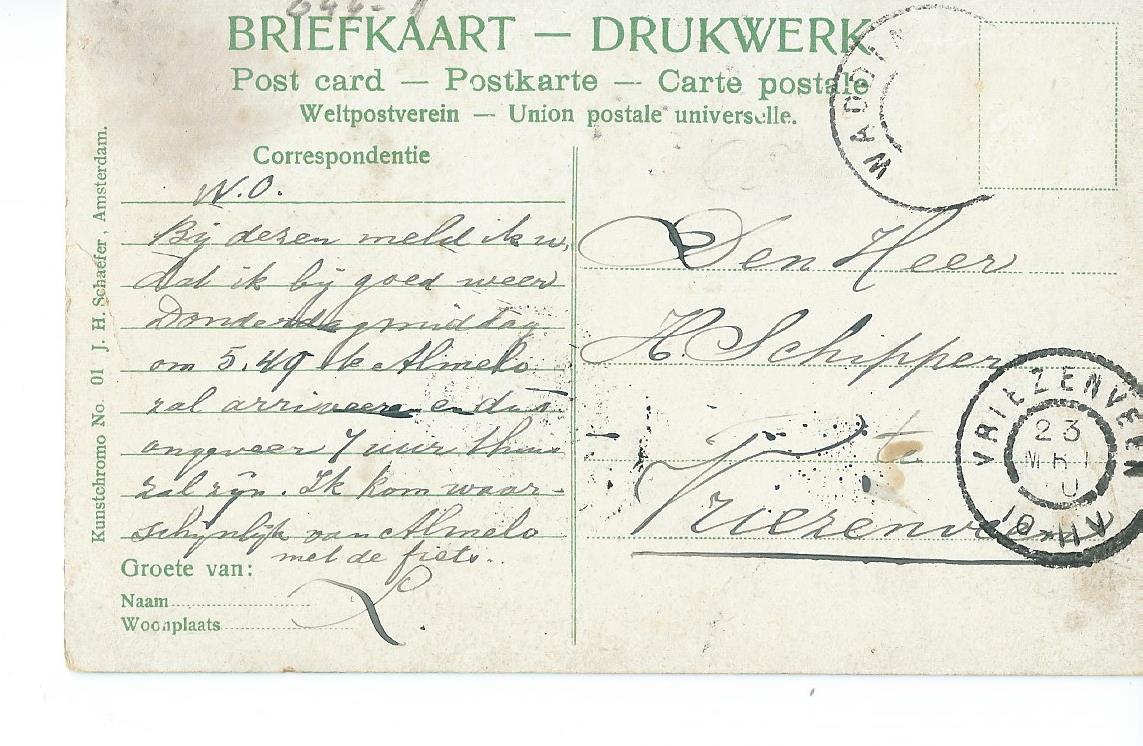 BRIEFKAART — DRUKWERK
Post card — Postkarte — Carte postale
Weltpostverein — Union postale universelle.
Correspondentie
W.O.
Bij dezen meld ik u,
dat ik bij goed weer
Donderdagmiddag
om 5.49 te Almelo
zal arriveeren en dus
ongeveer 7 uur thuis
zal zijn. Ik kom waar-
schijnlijk van Almelo
met de fiets.
Groete van:
Naam
Woonplaats
Z.
Kunstchromo No. 01 J. H. Schaefer, Amsterdam.
Den Heer
H. Schipper
te
Vriezenveen
WADDIN
VRIEZENVEEN
23
MRT